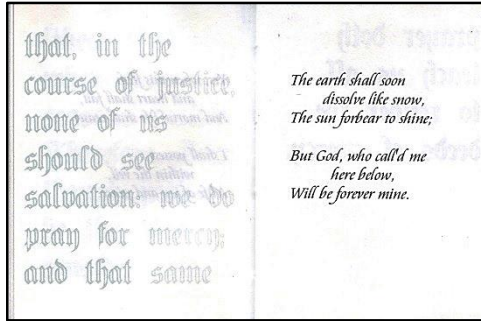 that, in the
course of justice,
none of us
should see
salvation: we do
pray for mercy;
and that same
The earth shall soon
dissolve like snow,
The sun forbear to shine;
But God, who call'd me
here below,
Will be forever mine.